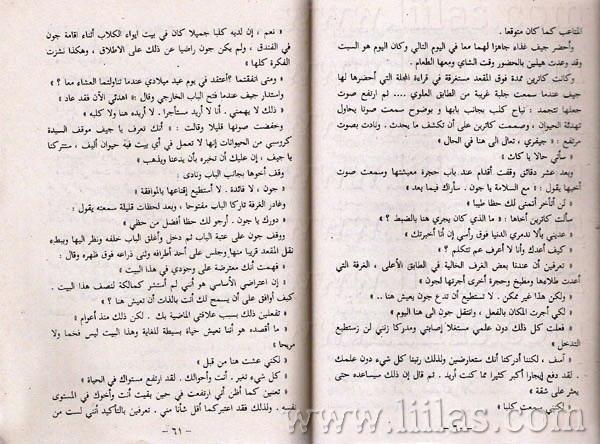 المتاعب كما كان متوقعا .
وأحضر جيف غذاء جاهزا لهما معا في اليوم التالي وكان اليوم هو السبت
وقد وعدت هيلين بالحضور وقت الشاي ومعها الطعام .
وكانت كاترين مدة فوق المقعد مستغرقة في قراءة المجلة التي أحضرها لها
جيف عندما سمعت جلبة غريبة من الطابق العلوي .... ثم ارتفع صوت
جعلها تتجمد : نباح كلب بجانب بابها و بوضوح سمعت صوتا يحاول
تهدئة الحيوان ، وصممت كاترين على أن تكشف ما يحدث . ونادت بصوت
مرتفع : « جيفري ، تعالى الى هنا في الحال »
« سآتي حالا يا كات »
وبعد عشر دقائق وقفت أقدام عند باب حجرة معيشتها وسمعت صوت
أخيها يقول : « مع السلامة يا جون . سأراك فيما بعد »
« لن أتأخر أتمنى لك حظا طيبا »
سألت كاترين أخاها : « ما الذي كان يجري هنا بالضبط ؟ »
« عديني بألا تدمري الدنيا فوق رأسي إن أنا أخبرتك »
« كيف أعدك وأنا لا أعرف عم تتكلم ؟ »
« تعرفين أن عندنا بعض الغرف الخالية في الطابق الأعلى ، الغرفة التي
أعدت طلاءها ومطبخ وحجرة أخرى أجرتها لجون »
« ولكن هذا غير ممكن . لا تستطيع أن تدع جون يعيش هنا .. »
« لكي أجرت المكان بالفعل ، وانتقل جون الى هنا اليوم »
« فعلت كل ذلك دون علمي مستغلا إصابتي ومدركا زنني لن زستطيع
التدخل »
« آسف ، لكننا أدركنا أنك ستعارضين ولذلك رتبنا كل شيء دون علمك
. لقد دفع إيجارا أكبر كثيرا مما كنت أريد . ثم قال إن ذلك سيساعده حتى
يعثر على شقة »
« لكنني سمعت كلبا »
- ٦٠ -
« نعم ، إن لديه كلبا جميلا كان في بيت ايواء الكلاب أثناء اقامة جون
في الفندق ، ولم يكن جون راضيا عن ذلك على الاطلاق ، وهكذا نشزت
الفكرة كلها »
« ومتى اتفقتما؟ أعتقد في يوم عيد ميلادي عندما تناولتما العشاء معا ؟ »
واستدار جيف عندما فتح الباب الخارجي وقال : « اهدئي الآن فقد عاد »
« ذلك لا يهمني . أنا لا أريد مستأجرا . لا أريده هنا ولا كلبه »
وخفضت صوتها قليلا وقالت : « أنك تعرف يا جيف موقف السيدة
كروسي من الحيوانات إنها لا تعمل في أي بيت فيه حيوان أليف ، ستتركنا
يا جيف ، إن عليك أن تخبره بأن يدعنا ويذهب »
وقف أخوها بجانب الباب ونادى :
« جون ، لا فائدة . لا أستطيع إقناعها بالموافقة »
وغادر الغرفة تاركا الباب مفتوحا ، وبعد لحظات قليلة سمعته يقول :
« دورك يا جون . أرجو لك حظا أفضل من حظي »
ووقف جون على عتبة الباب ثم دخل وأغلق الباب خلفه ونظر اليها وببطء
نقل المقعد قريبا منها وجلس على أحد أطرافه وثنى ذراعه فوق ظهره وقال :
« فهمت أنك معترضة على وجودي في هذا البيت »
« إن اعتراضي الأساسي هو أنني لم أستشر كمالكة لنصف هذا البيت .
كيف أوافق على أن يسمح لك أنت بالذات أن تعيش هنا ؟ »
« تفعلين ذلك بسبب علاقتي الماضية بك . لكن ذلك منذ أعوام »
« ما أقصده هو أننا نعيش حياة بسيطة للغاية وهذا البيت ليس فخما ولا
مريحا »
« لكنني عشت هنا من قبل »
« كل شيء تغير . أنت وأحوالك . لقد ارتفع مستواك في الحياة »
« تعنين كما أظن أني ارتفعت في حين بقيت أنت وأخوك في المستوى
نفسه . ولذلك فقد اعتبركما أقل شأنا مني . تعرفين بالتأكيد أنني لست من
- ٦١ -
www.liilas.com
www.liilas.com